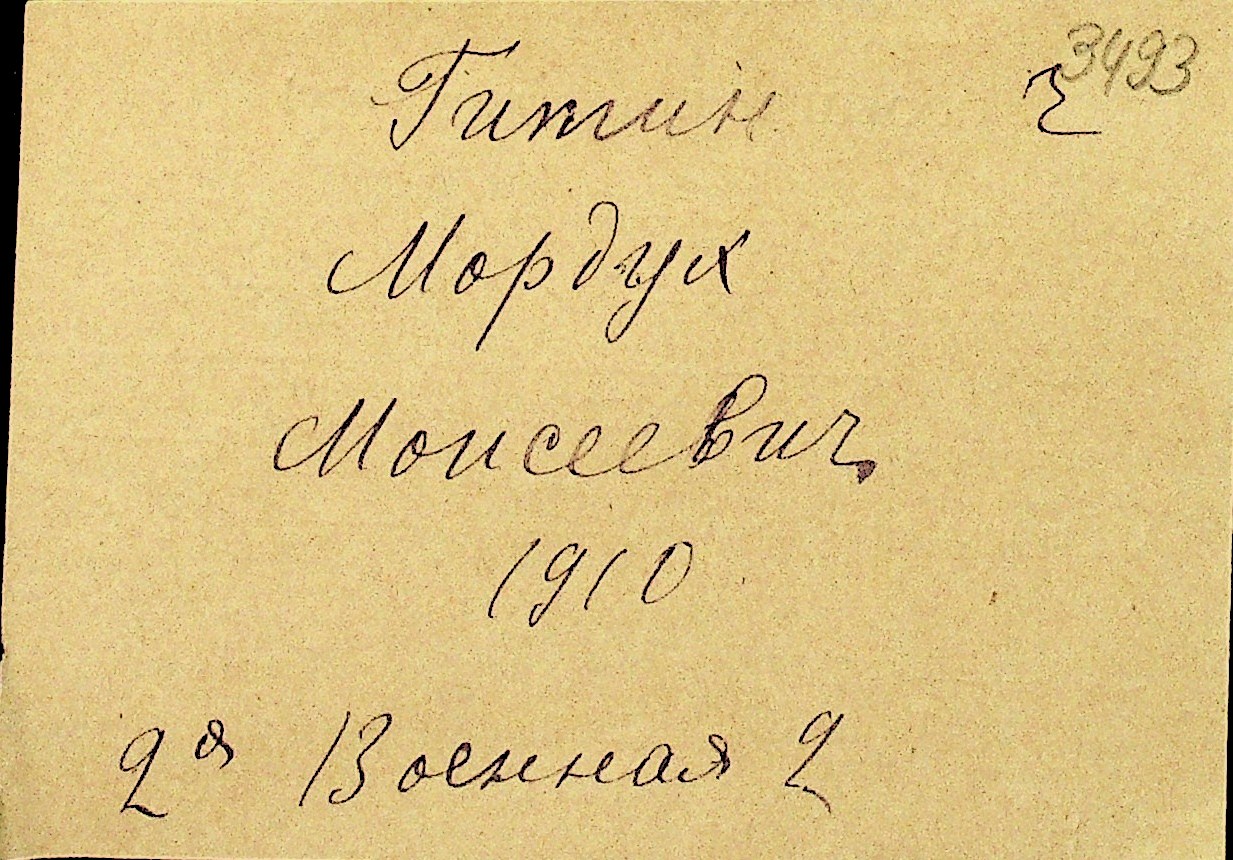 3493
Гитин
Мордух
Моисеевич
1910
2я Военная 2